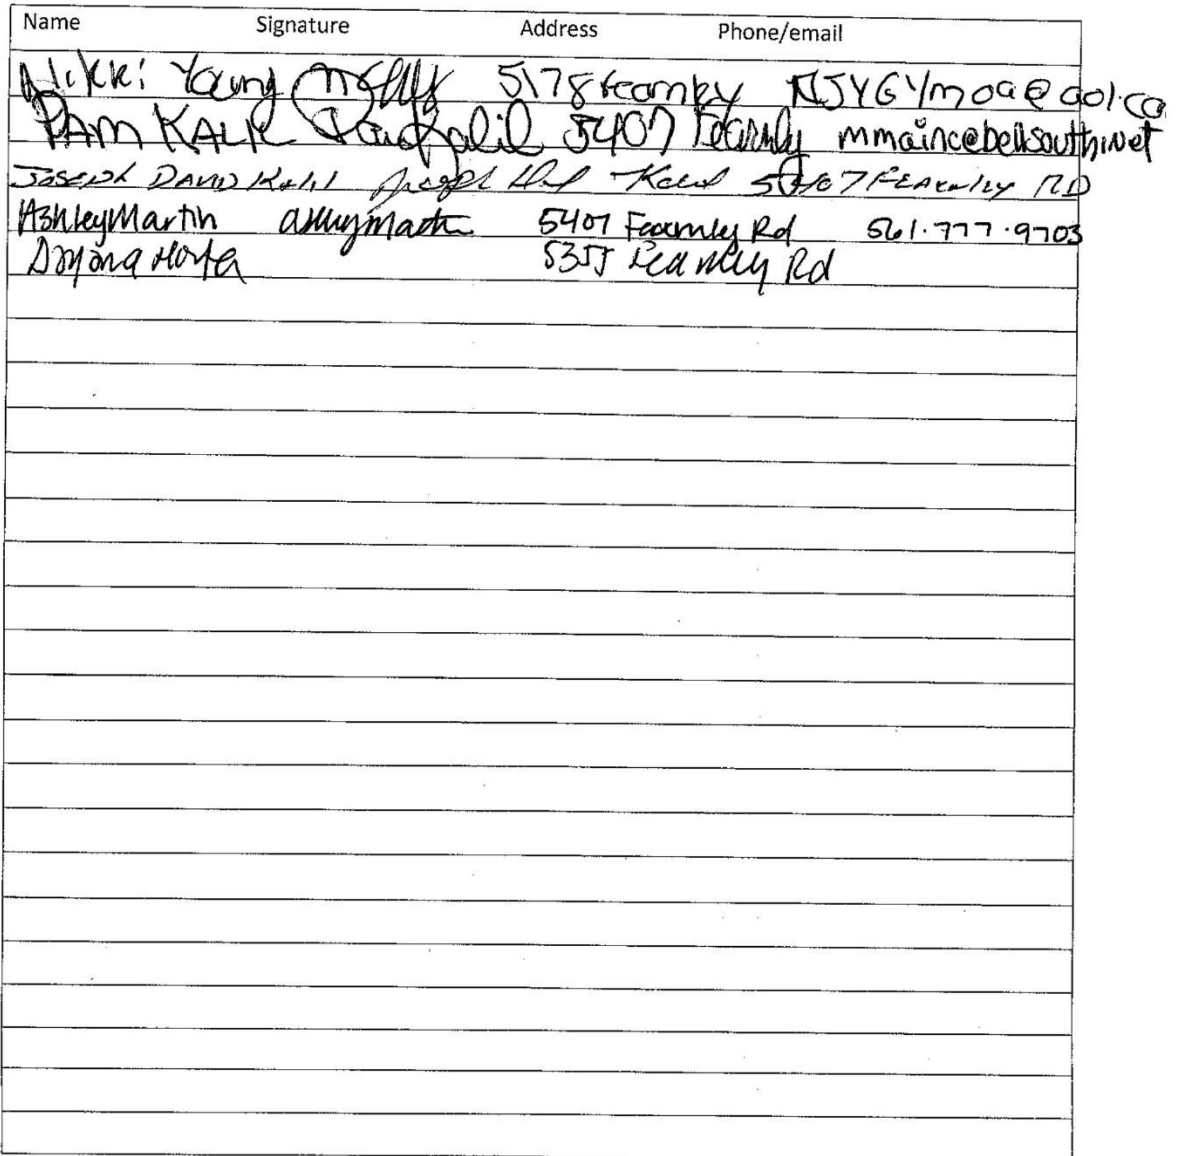 Name Signature Address Phone/email
Nikki Young 5178 Fearnley NJYGYmoa@aol.co
PAM KALIL Pam Kalil 5407 Fearnly mmainc@bellsouth.net
JOSEPH DAVID Kalil Joseph David Kalil 5407 FEARNley RD
Ashley Martin 5407 Fearnley Rd 561.777.9703
5355 Fearnley Rd